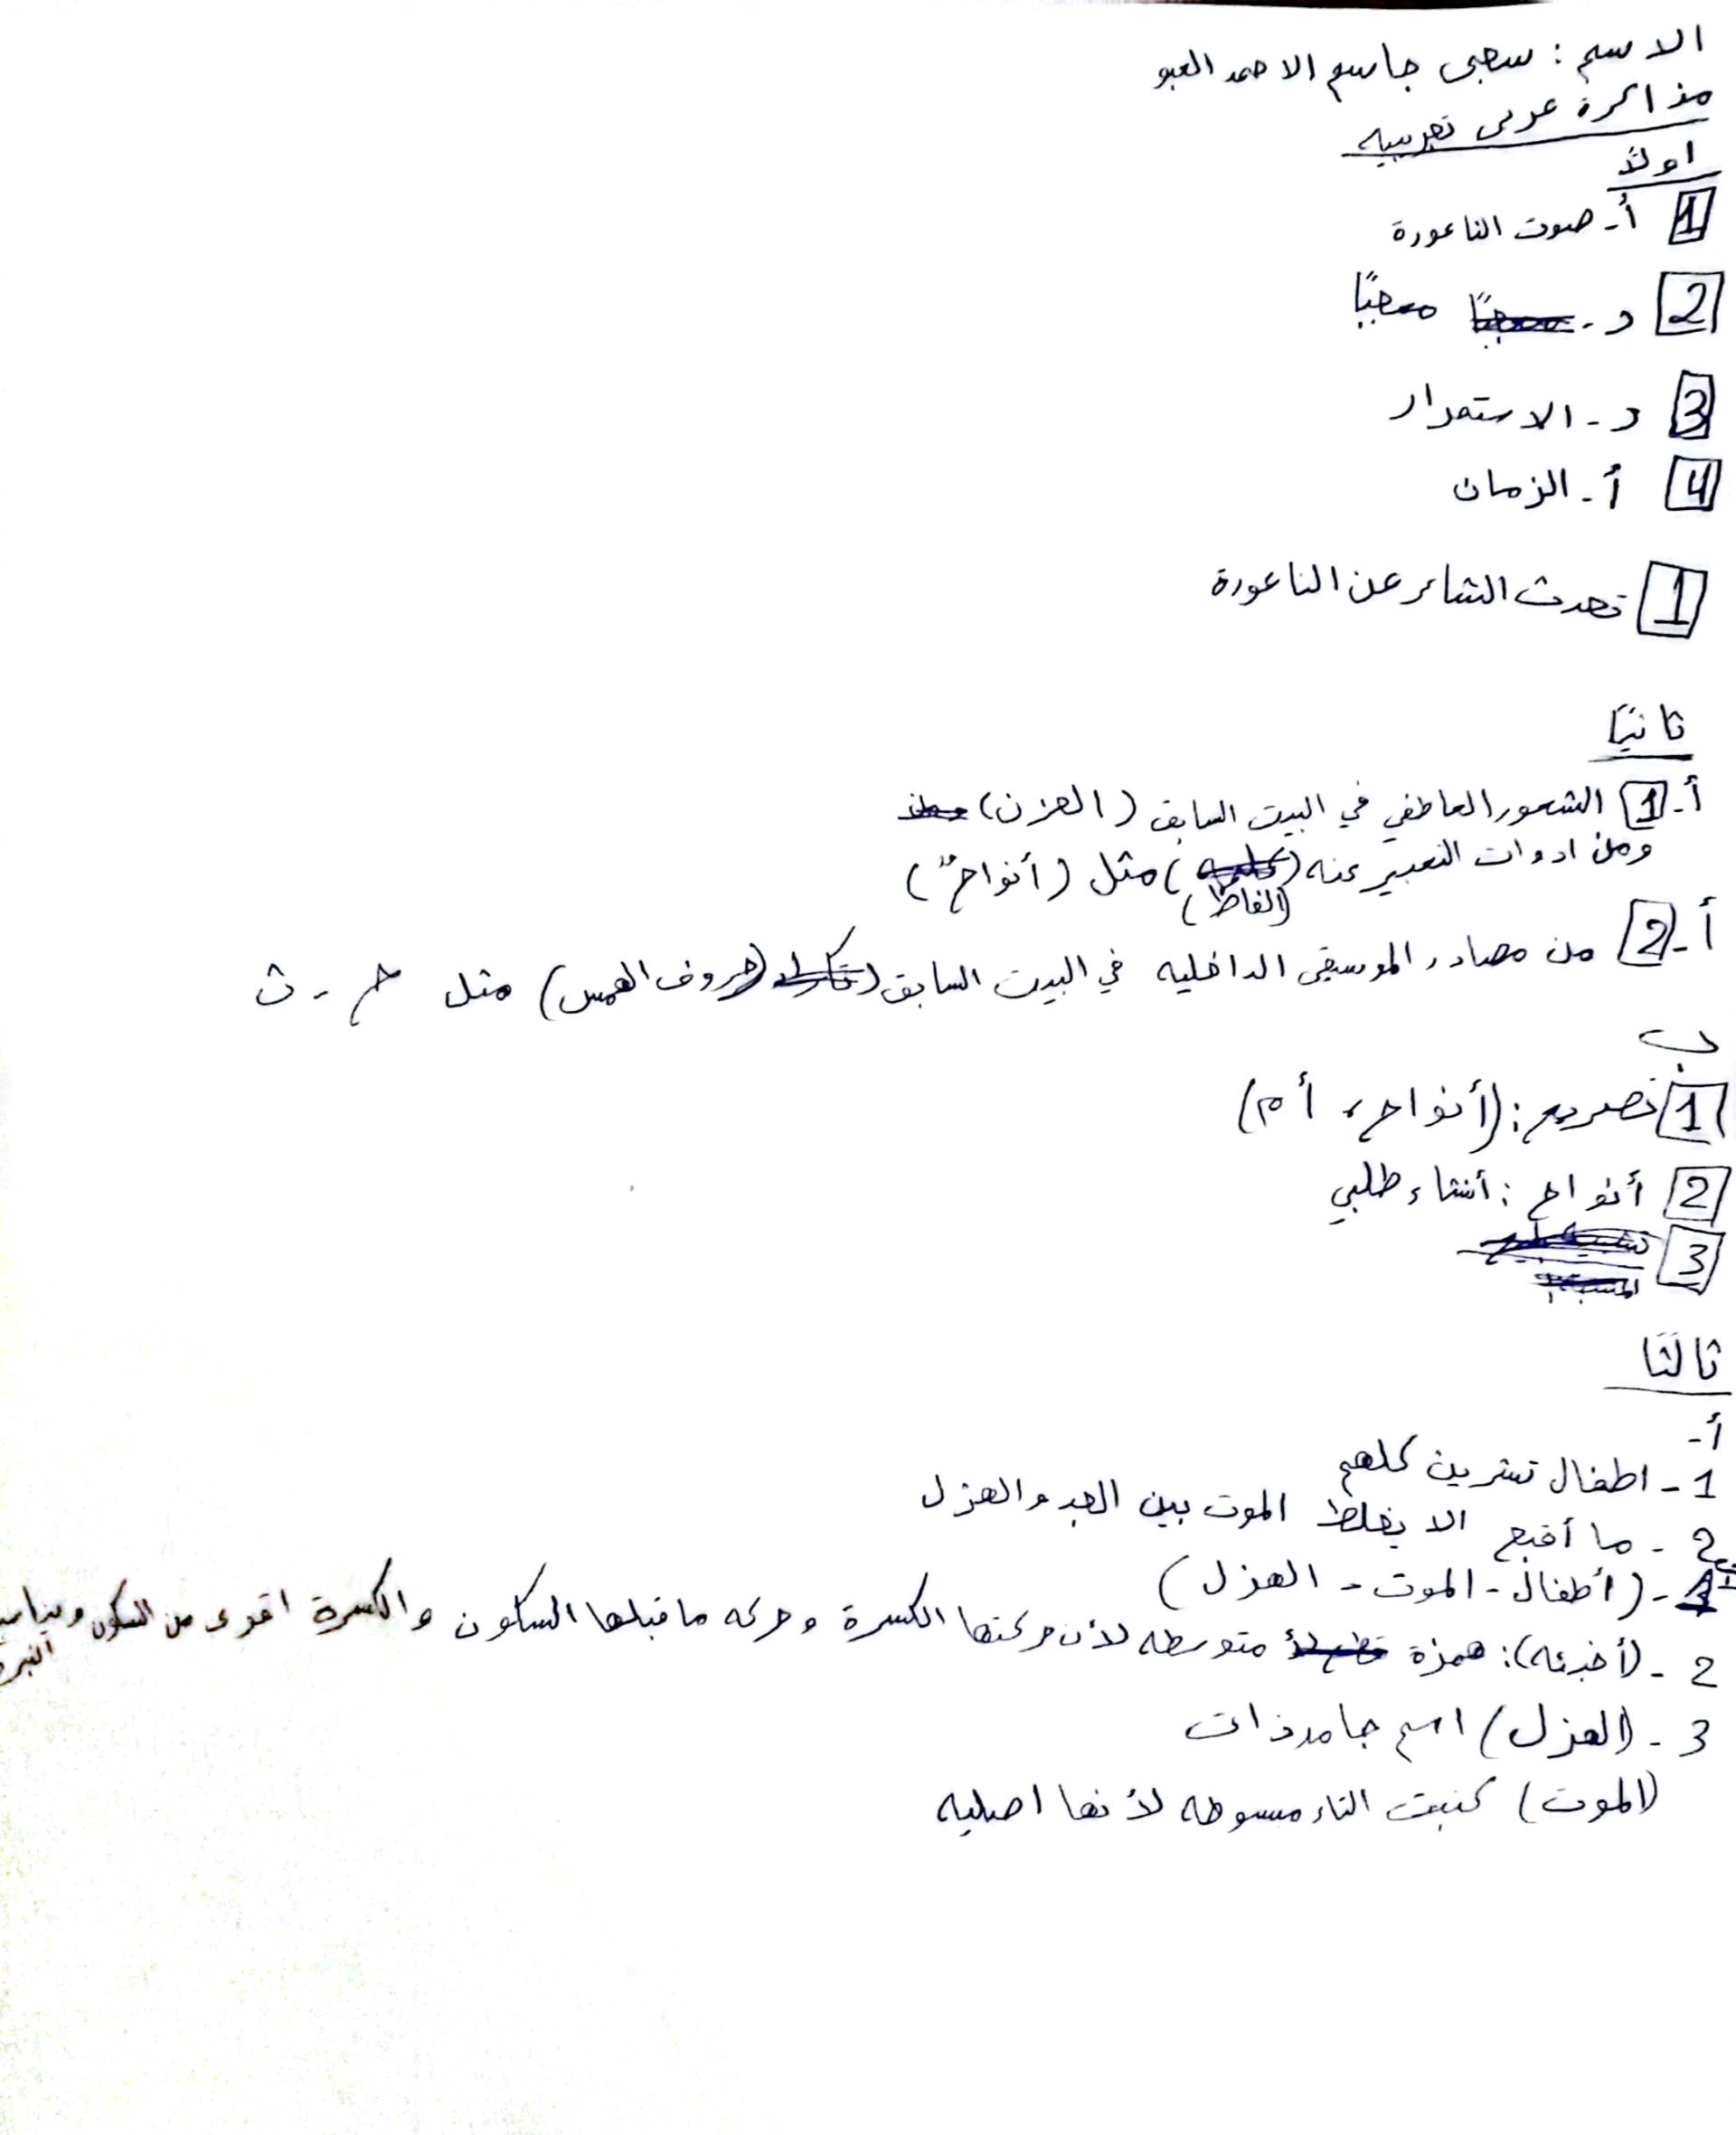 الاسم : سجى جاسم الاحمد العبو
مذاكرة عربي تجريبيه
اولاً
1 أ- صوت الناعورة
2 د - محبباً
3 د - الاستمرار
4 أ - الزمان
1 تحدث الشاعر عن الناعورة
ثانياً
أ- 1 الشعور العاطفي في البيت السابق (الحزن)
ومن ادوات التعبير عنه ( ) مثل (أنواحٌ)
(الفاظ)
أ- 2 من مصادر الموسيقى الداخليه في البيت السابق (حروف الهمس) مثل ح - ث
ب
1 تصريع : (أنواح، أم)
2 أنواح : أنشاء طلبي
3
ثالثاً
أ-
1 - اطفال تشرين كلهم
2 - ما أقبح الا يخلط الموت بين الجد والهزل
1 - (أطفال - الموت - الهزل)
2 - (أخبئه): همزة متوسطه لأن حركتها الكسرة وحركه ماقبلها السكون والكسرة اقوى من السكون ويناسبها النبرة
3 - (الهزل) اسم جامد ذات
(الموت) كتبت التاء مبسوطه لأنها اصليه